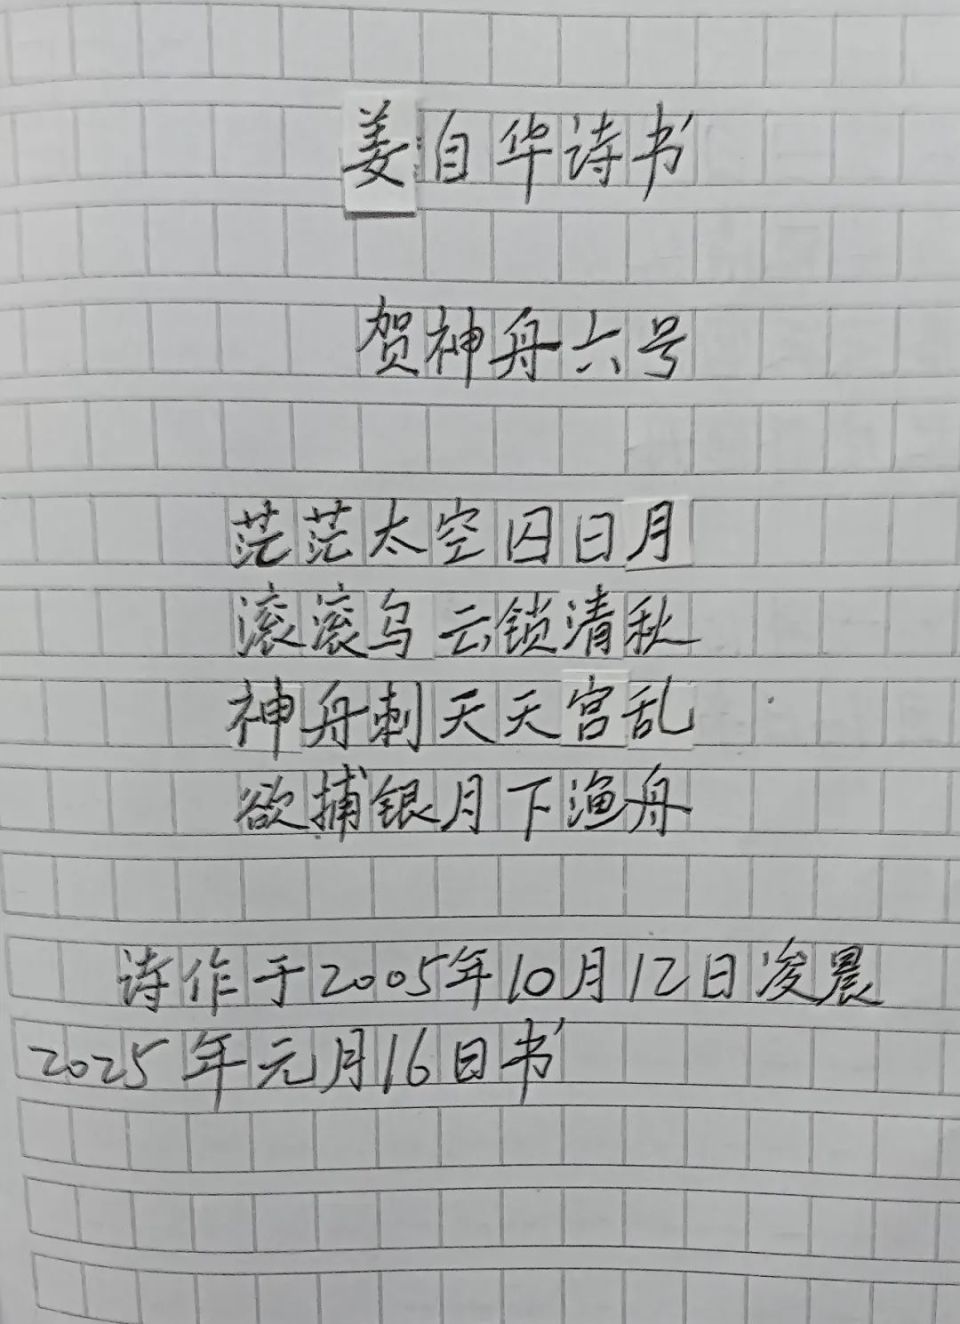 姜自华诗书
贺神舟六号
茫茫太空囚日月
滚滚乌云锁清秋
神舟刺天天宫乱
欲捕银月下渔舟
诗作于2005年10月12日凌晨
2025年元月16日书